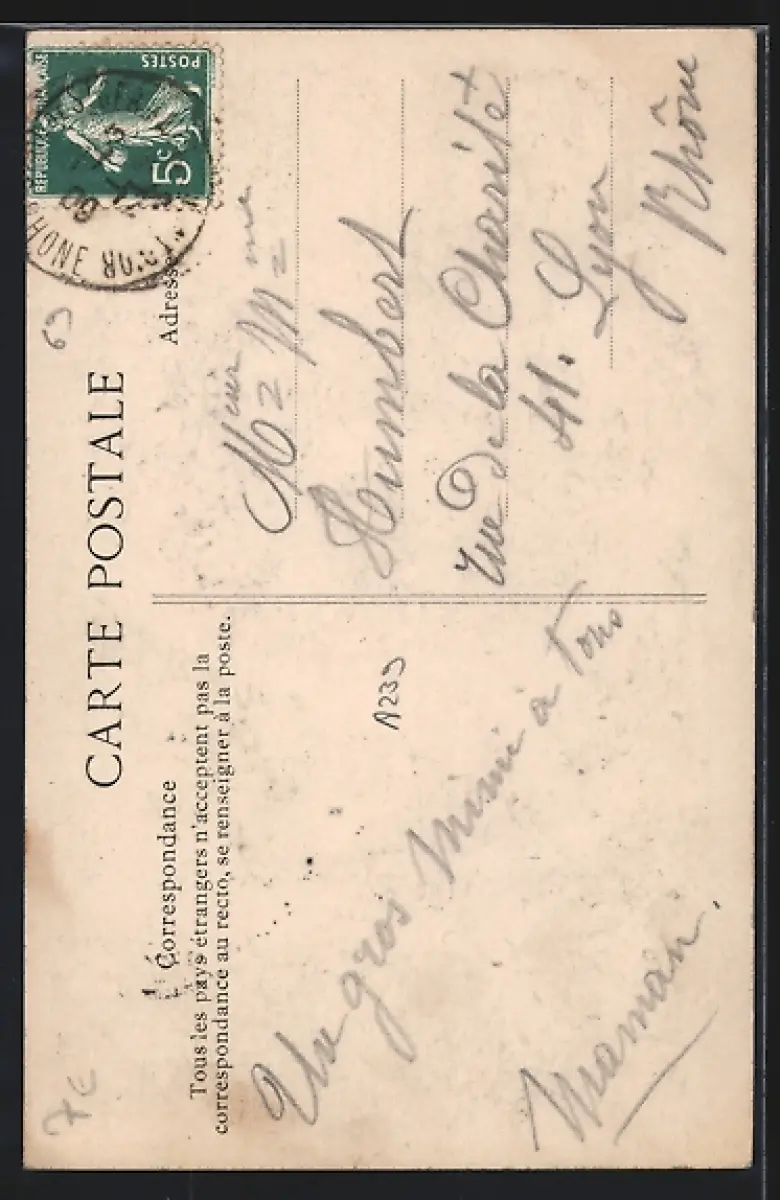 CARTE POSTALE
Correspondance
Tous les pays étrangers n'acceptent pas la
correspondance au recto, se renseigner à la poste.
Adresse
RÉPUBLIQUE FRANÇAISE
POSTES
5c
RHONE
69
Un gros Mimi à Tous
Maman.
A239
7€
Humbert
rue de la Charité
41. Lyon
Rhône